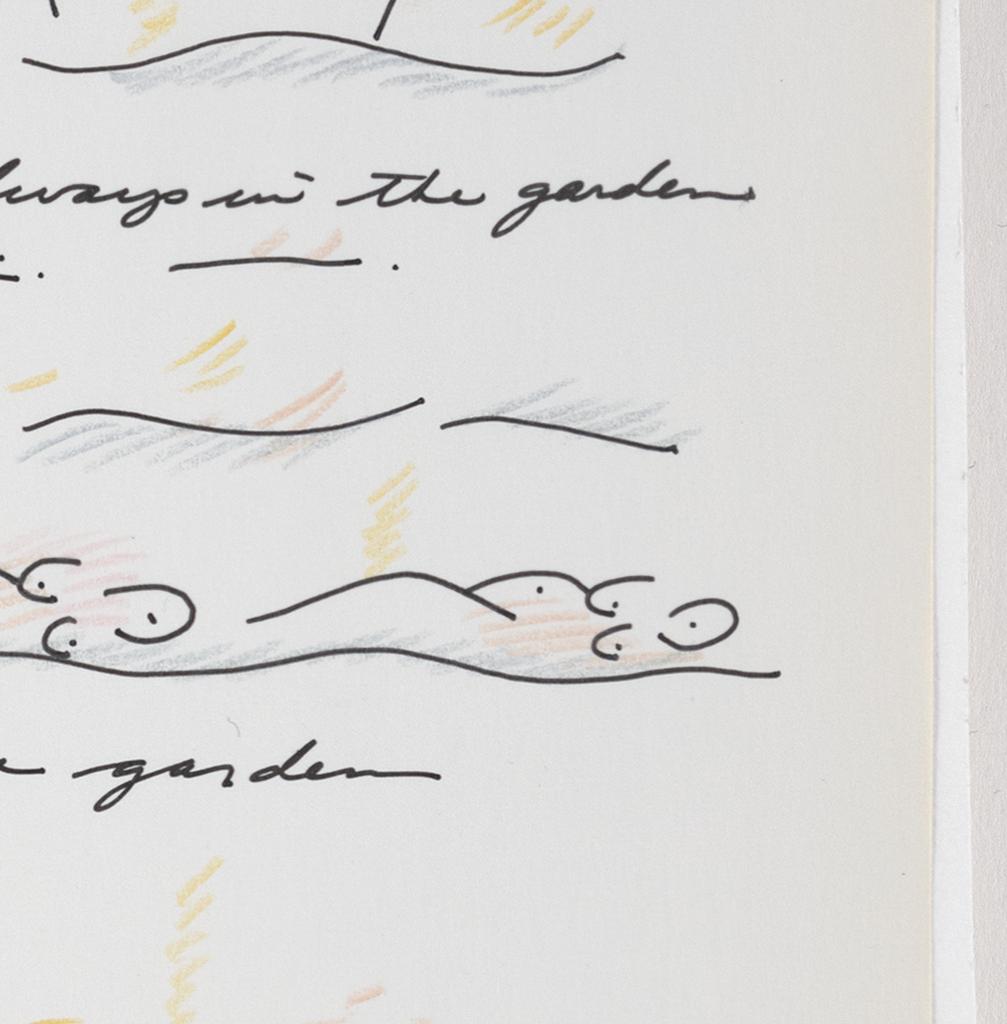 lways in the garden
garden